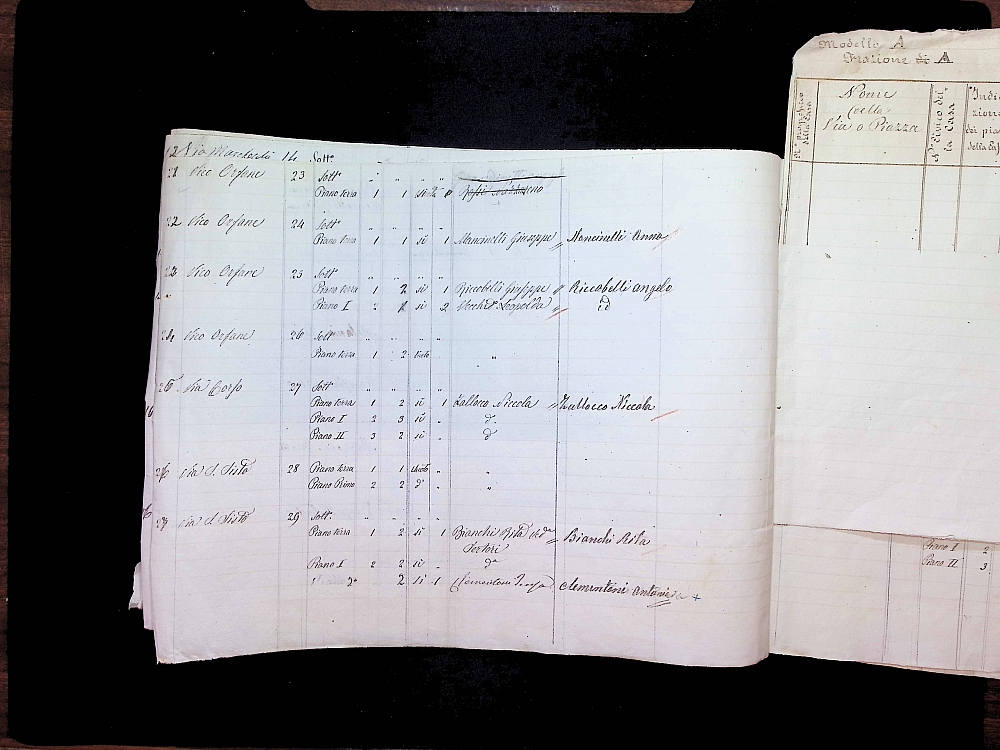 12 Via 14 Sott°
21 Vico Orfane 23 Sott° " " " "
Piano terra 1 1 si
22 Vico Orfane 24 Sott° " " " "
Piano terra 1 1 si 1 Mancinelli Giuseppe " Mancinelli Anna
23 Vico Orfane 25 Sott° " " " "
Piano terra 1 2 si 1 Riccobelli Giuseppe " Riccabelli angelo
Piano I 2 1 si 2 Leopolda " id
24 Vico Orfane 26 Sott° " " " "
Piano terra 1 2 "
Via Corso 27 Sott° " " " "
Piano terra 1 2 si 1 Zallocco Niccola " Zallocco Niccola
Piano I 2 3 si " d°
Piano II 3 2 si " d°
26 via S. Sisto 28 Piano terra 1 1 " "
Piano Primo 2 2 d° " "
27 via S. Sisto 29 Sott° " " " "
Piano terra 1 2 si 1 Bianchi Rita ved^a " Bianchi Rita
Sertori
Piano I 2 2 si " d^a
d° 2 si 1 Clementoni Antonio +
Modello A
Frazione di A
N° progressivo della Casa
Nome
della
Via o Piazza
N° Civico del
la Casa
Indic
zione
dei pia
della Cas
Piano I 2
Piano II 3